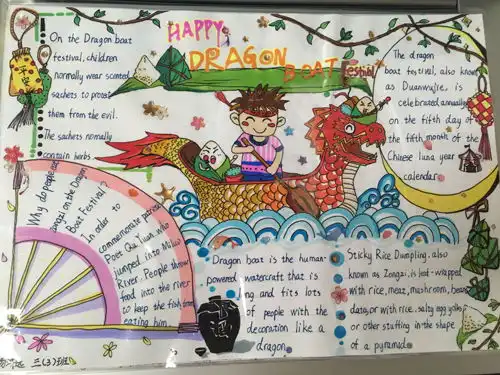 HAPPY
DRAGON
BOAT Festival
On the Dragon boat
festival, children
normally wear scented
sachets to protect
them from the evil.
The sachets normally
contain herbs
The dragon
boat festival, also known
as Duanwujie, is
celebrated annually
on the fifth day of
the fifth month of the
Chinese luna year
calendar
Why do people eat
zongzi on the Dragon
Boat Festival?
In order to
commemorate patriotic
Poet Qu Yuan who
jumped into Miluo
River. People throw
food into the river
to keep the fish from
eating him
Dragon boat is the human
powered watercraft that is
ng and fits lots
of people with the
decoration like a
dragon
Sticky Rice Dumpling, also
known as Zongzi, is leaf-wrapped
with rice, meat, mushroom, beans
dates, or with rice, salty egg yolks
or other stuffing in the shape
of a pyramid.
三(3)班